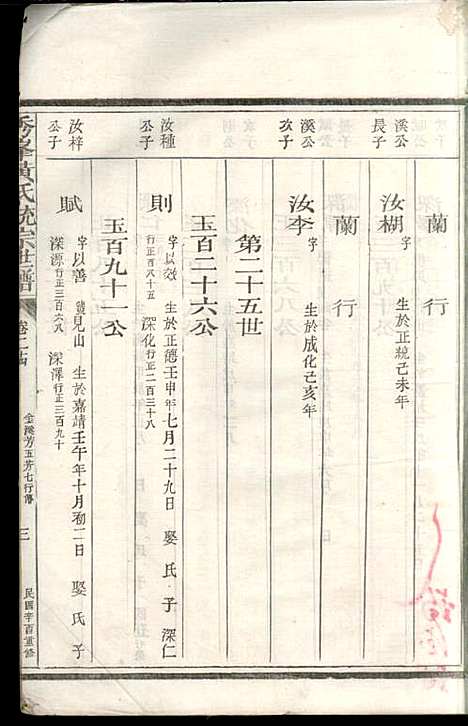 蘭行
溪公長子
汝楜字 生於正統己未年
蘭行
溪公次子
汝李字 生於成化己亥年
第二十五世
玉百二十六公
汝種公子
則 字以效 生於正德壬申年七月二十九日 娶氏 子 深仁行正百八十五 深化行正二百三十八
玉百九十一公
汝梓公子
賦 字以善 號見山 生於嘉靖壬午年十月初二日 娶氏 子 深源行正三百六八 深澤行正三百九十
秀峯黃氏統宗世譜
卷二 金溪芳五芳七行傳 三 民國辛酉重修